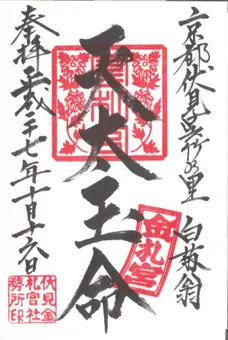 京都伏見呉竹の里　白菊翁
天太玉命
金札宮
奉拝　平成二十七年十月十六日
伏見金
札宮社
務所印